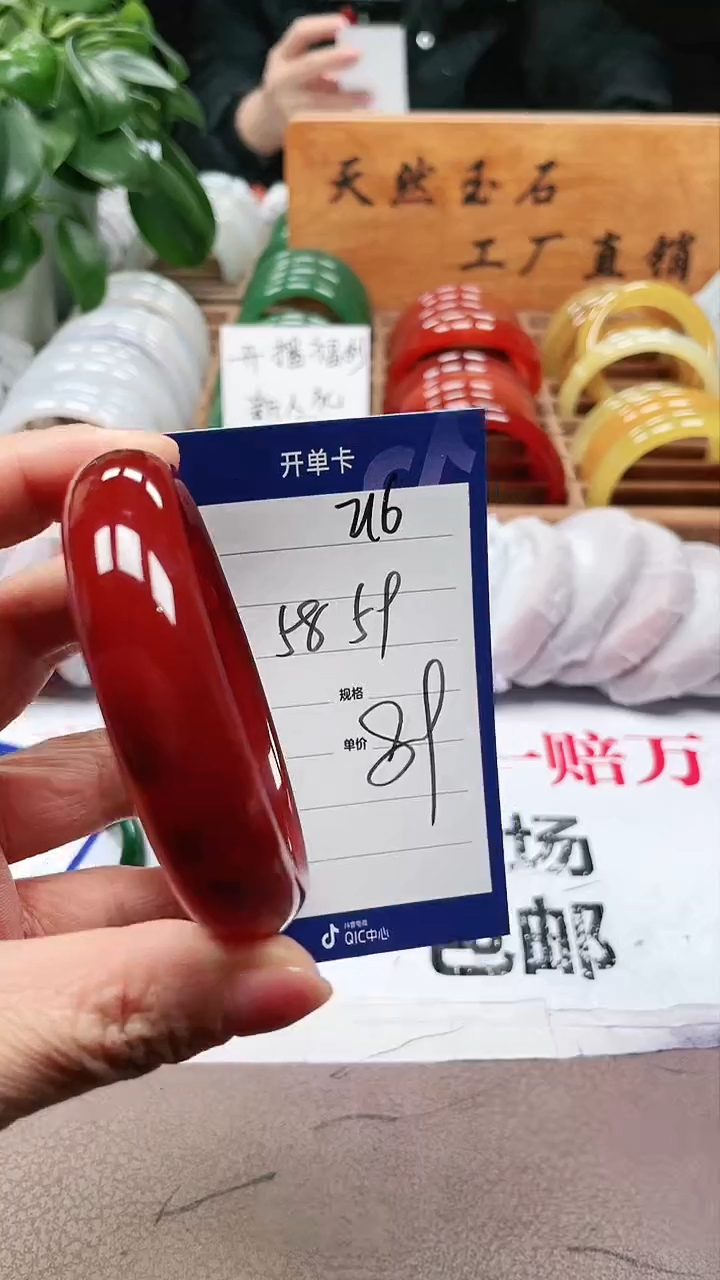 天然玉石
工厂直销
开播福利
新人礼
开单卡
216
58 59
规格
单价 89
抖音电商
QIC中心
一赔万
场
包邮